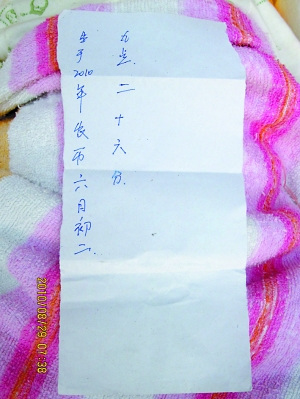 生于2010年农历六月初二
点二十六分
2010/08/29 07:38